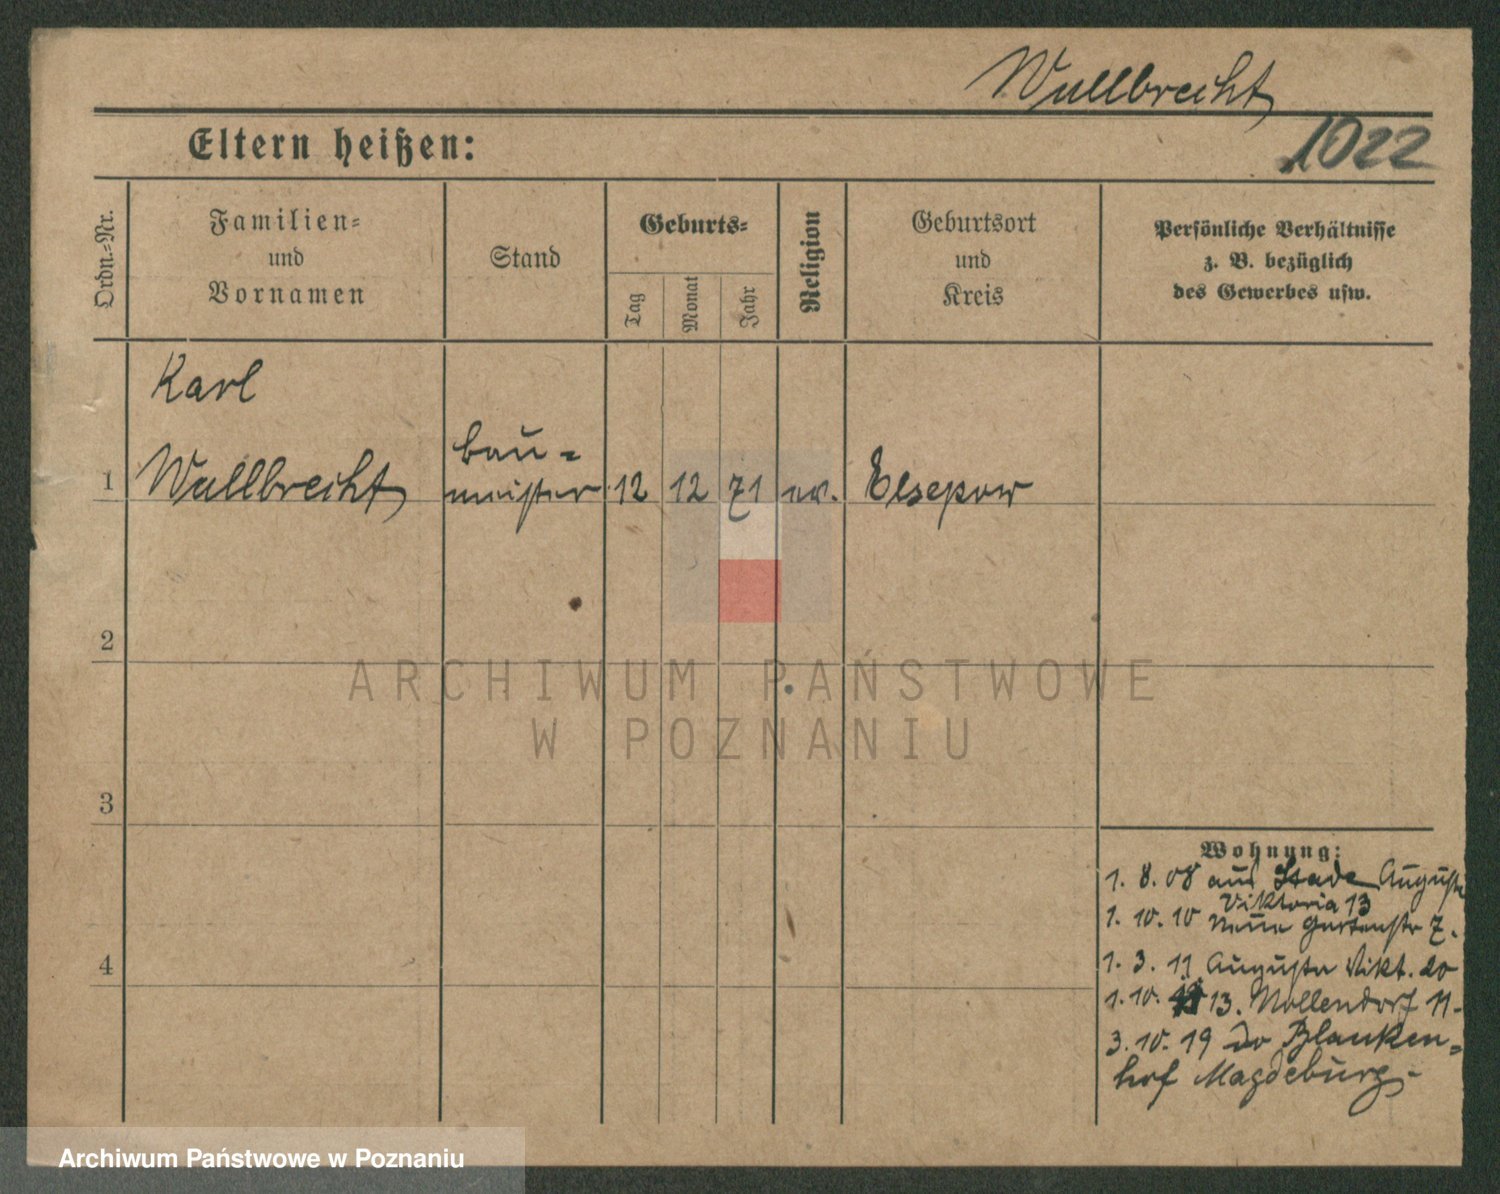 Wallbrecht
1022
Eltern heißen:
Ordn.-Nr.
Familien-
und
Vornamen
Stand
Geburts-
Tag
Monat
Jahr
Religion
Geburtsort
und
Kreis
Persönliche Verhältnisse
z. B. bezüglich
des Gewerbes usw.
Karl
1 Wallbrecht
Bau-
meister
12 12 71 ev.
2
3
4
Wohnung:
1. 8. 08 aus Stade Auguste
Viktoria 13
1. 10. 10 Neue Gartenstr 7.
1. 3. 11 Augusta Vikt. 20
1. 10. 13. Nollendorf 11-
3. 10. 19 Blanken-
hof Magdeburg-
ARCHIWUM PAŃSTWOWE
W POZNANIU
Archiwum Państwowe w Poznaniu